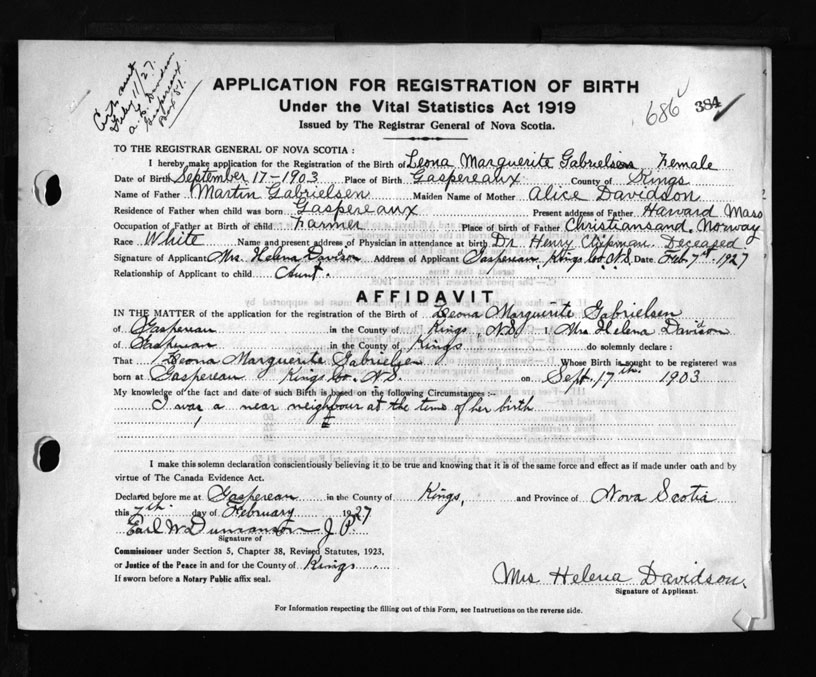 Feby 11/27.
Gaspereaux
Box 81.
686 384
APPLICATION FOR REGISTRATION OF BIRTH
Under the Vital Statistics Act 1919
Issued by The Registrar General of Nova Scotia.
TO THE REGISTRAR GENERAL OF NOVA SCOTIA :
I hereby make application for the Registration of the Birth of Leona Marguerite Gabrielsen Female
Date of Birth September 17-1903 Place of Birth Gaspereaux County of Kings
Name of Father Martin Gabrielsen Maiden Name of Mother Alice Davidson
Residence of Father when child was born Gaspereaux Present address of Father Harvard Mass
Occupation of Father at Birth of child Farmer Place of birth of Father Christiansand, Norway
Race White Name and present address of Physician in attendance at birth Dr Henry Chipman. Deceased
Signature of Applicant Mrs. Helena Davison Address of Applicant Gasperean, Kings Co. N.S. Date Feb 7th 1927
Relationship of Applicant to child Aunt.
AFFIDAVIT
IN THE MATTER of the application for the registration of the Birth of Leona Marguerite Gabrielsen
of Gasperean in the County of Kings, N.S. I, Mrs Helena Davison
of Gasperean in the County of Kings do solemnly declare :
That Leona Marguerite Gabrielsen Whose Birth is sought to be registered was
born at Gasperean Kings Co. N.S. on Sept. 17th. 1903
My knowledge of the fact and date of such Birth is based on the following Circumstances :-
I was a near neighbour at the time of her birth
I make this solemn declaration conscientiously believing it to be true and knowing that it is of the same force and effect as if made under oath and by
virtue of The Canada Evidence Act.
Declared before me at Gasperean in the County of Kings, and Province of Nova Scotia
this 7th. day of February 1927
Earl W. Duncanson J P.
Signature of
Commissioner under Section 5, Chapter 38, Revised Statutes, 1923,
or Justice of the Peace in and for the County of Kings
If sworn before a Notary Public affix seal.
Mrs Helena Davidson.
Signature of Applicant.
For Information respecting the filling out of this Form, see Instructions on the reverse side.